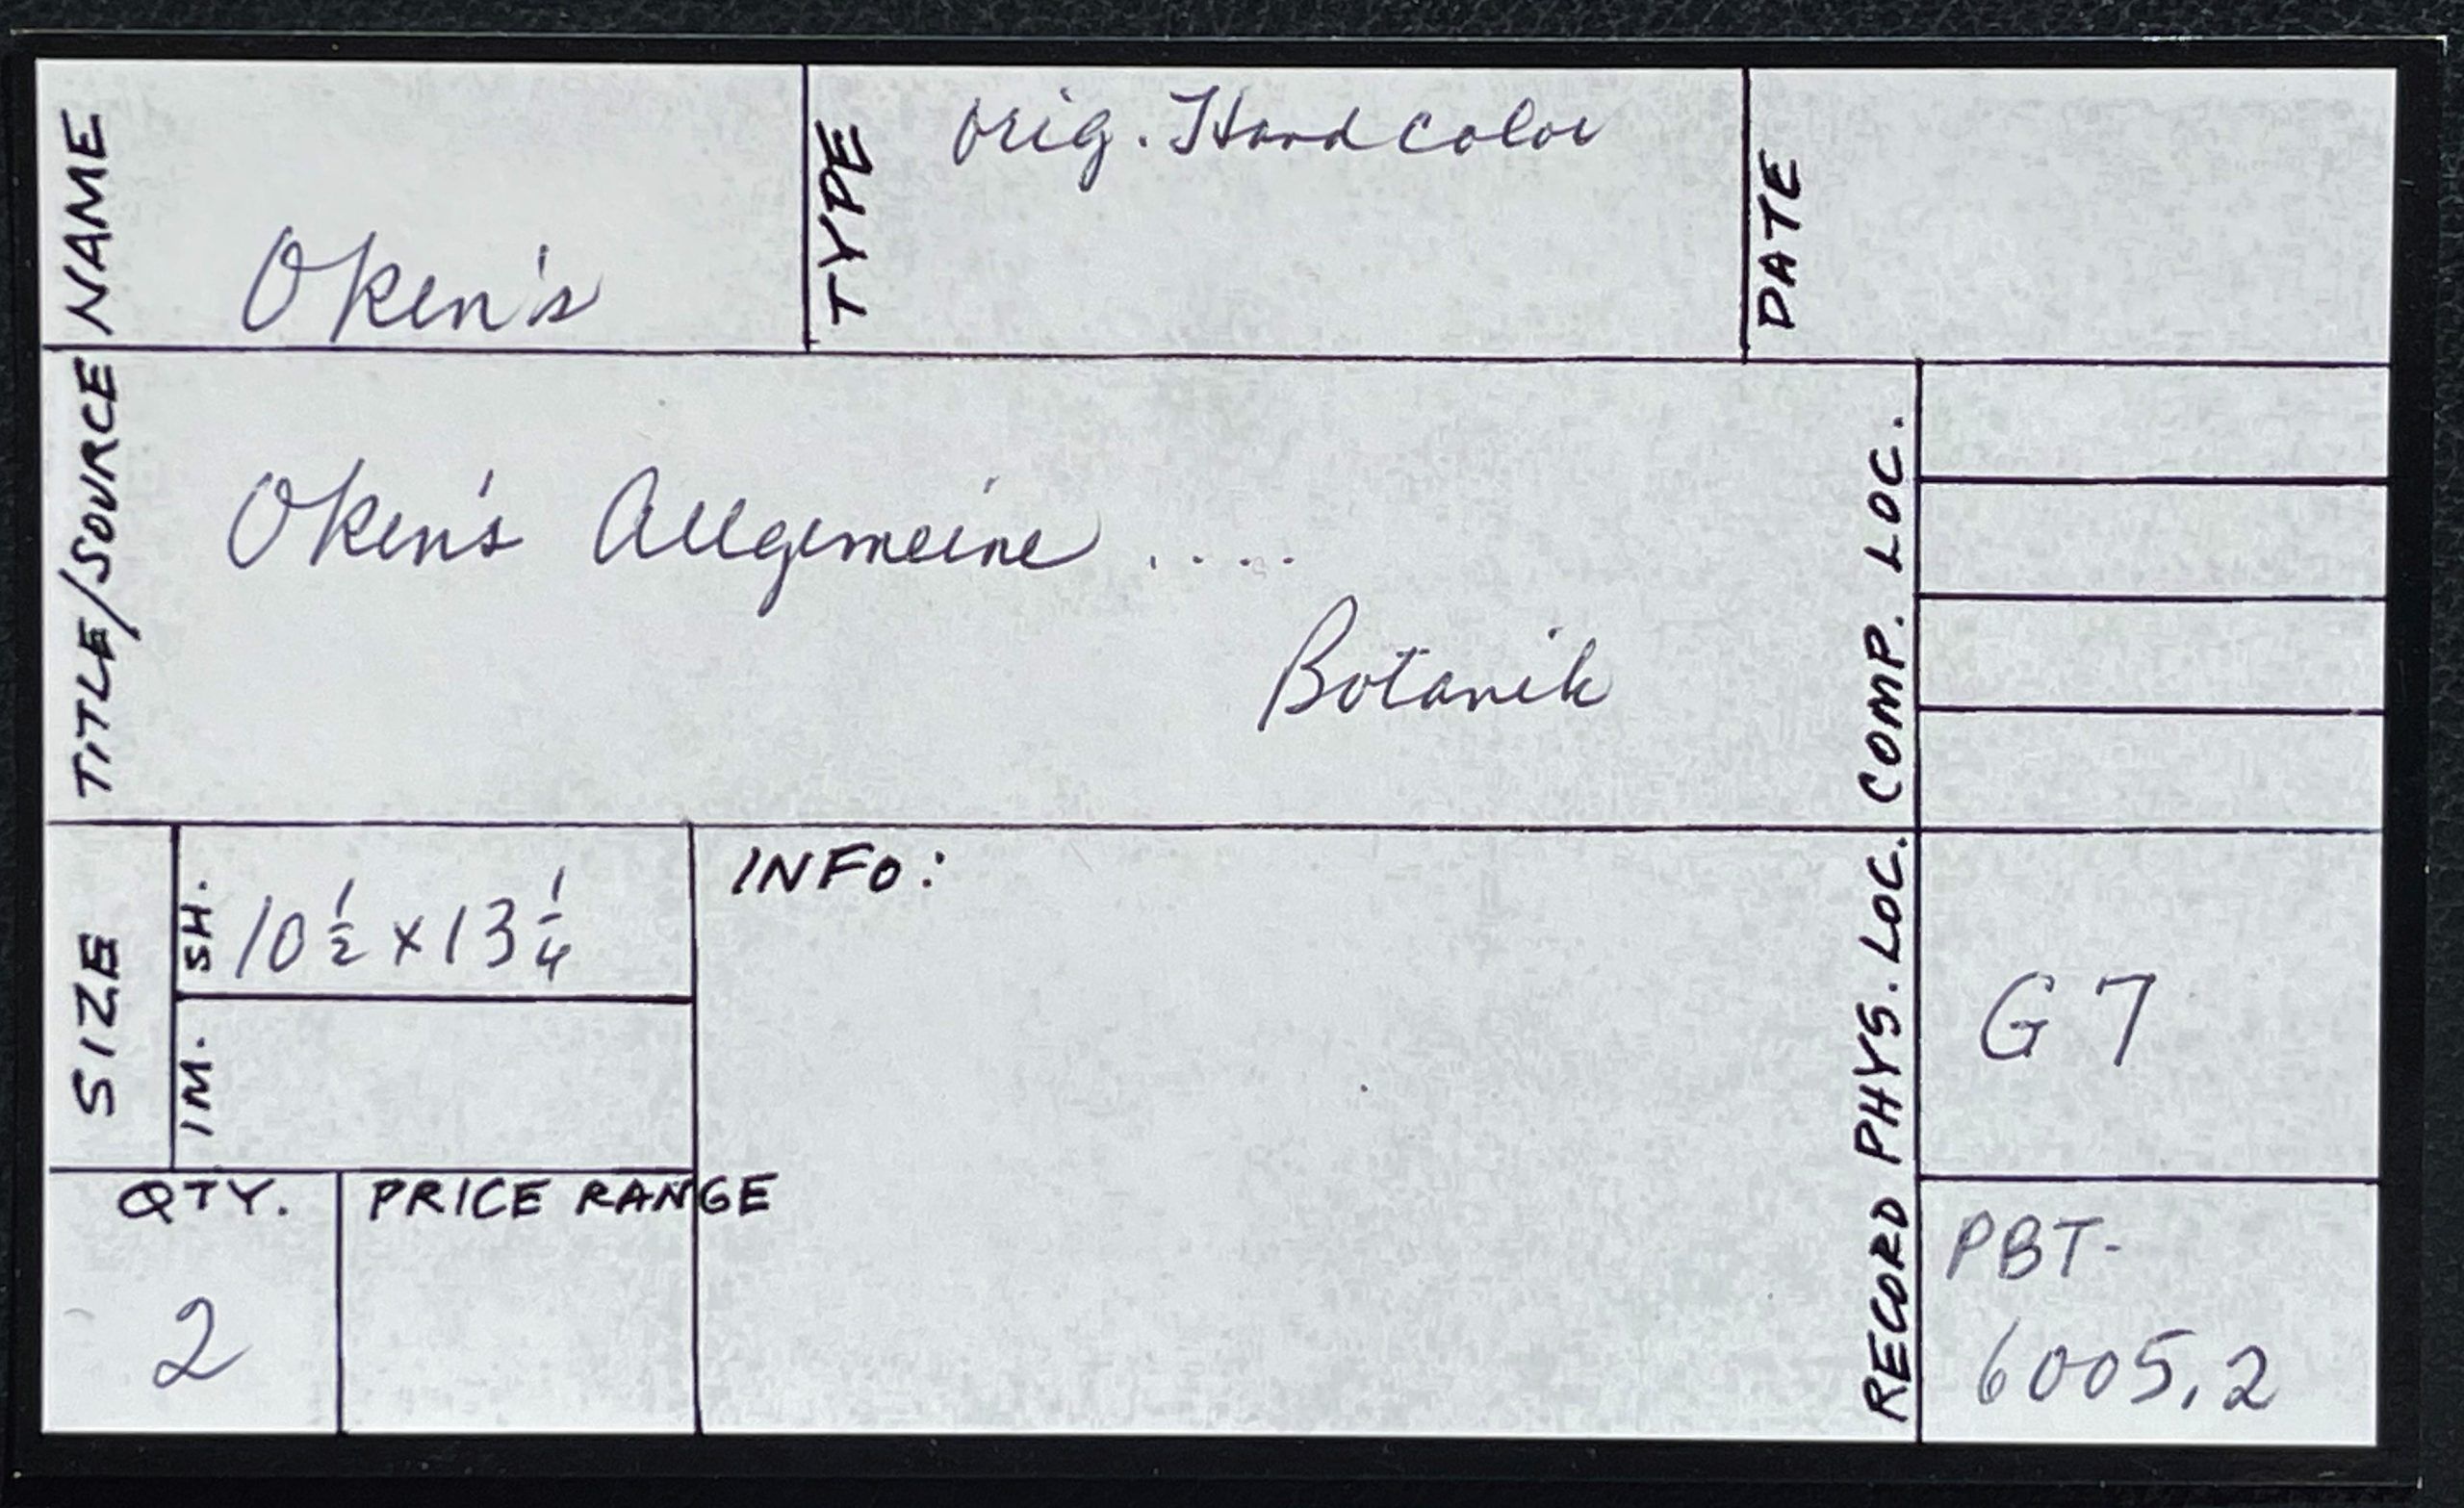 NAME
Oken's
TYPE
Orig. Hand color
DATE
TITLE/SOURCE
Oken's Allgemeine .....
Botanik
COMP. LOC.
SIZE
SH.
10 1/2 x 13 1/4
IM.
INFO:
PHYS. LOC.
G7
QTY.
2
PRICE RANGE
RECORD
PBT-
6005.2